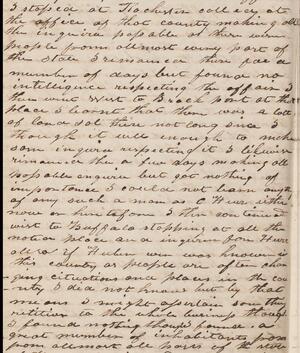 I stoped at Rochester colledg at
the office of that country making all
the inquire posable as there were
people from allmost every part of
the State I remained there for a
number of days but found no
intelligence respecting the affair I
then went West to Brock port at that
place I learnt that there was a lott
of land sold there not long since I
thought it will enough to make
som inquire respecting it I likewise
remained there a few days making all
posable enquire but got nothing of
importance I could not learn any
of any such a man as C Hure either
now or heretofore I then continued
west to Buffalo stopping at all the
notion place and inquiring for Hure
allso if Hulen were was known in
this country as people are often chan
ging cituations and places in the cou
ntry I did not know but by that
means I might assertain something
retition to the whole buriness though
I found nothing though I pouned a
great number of inhabitants from
from allmost all parts of the state